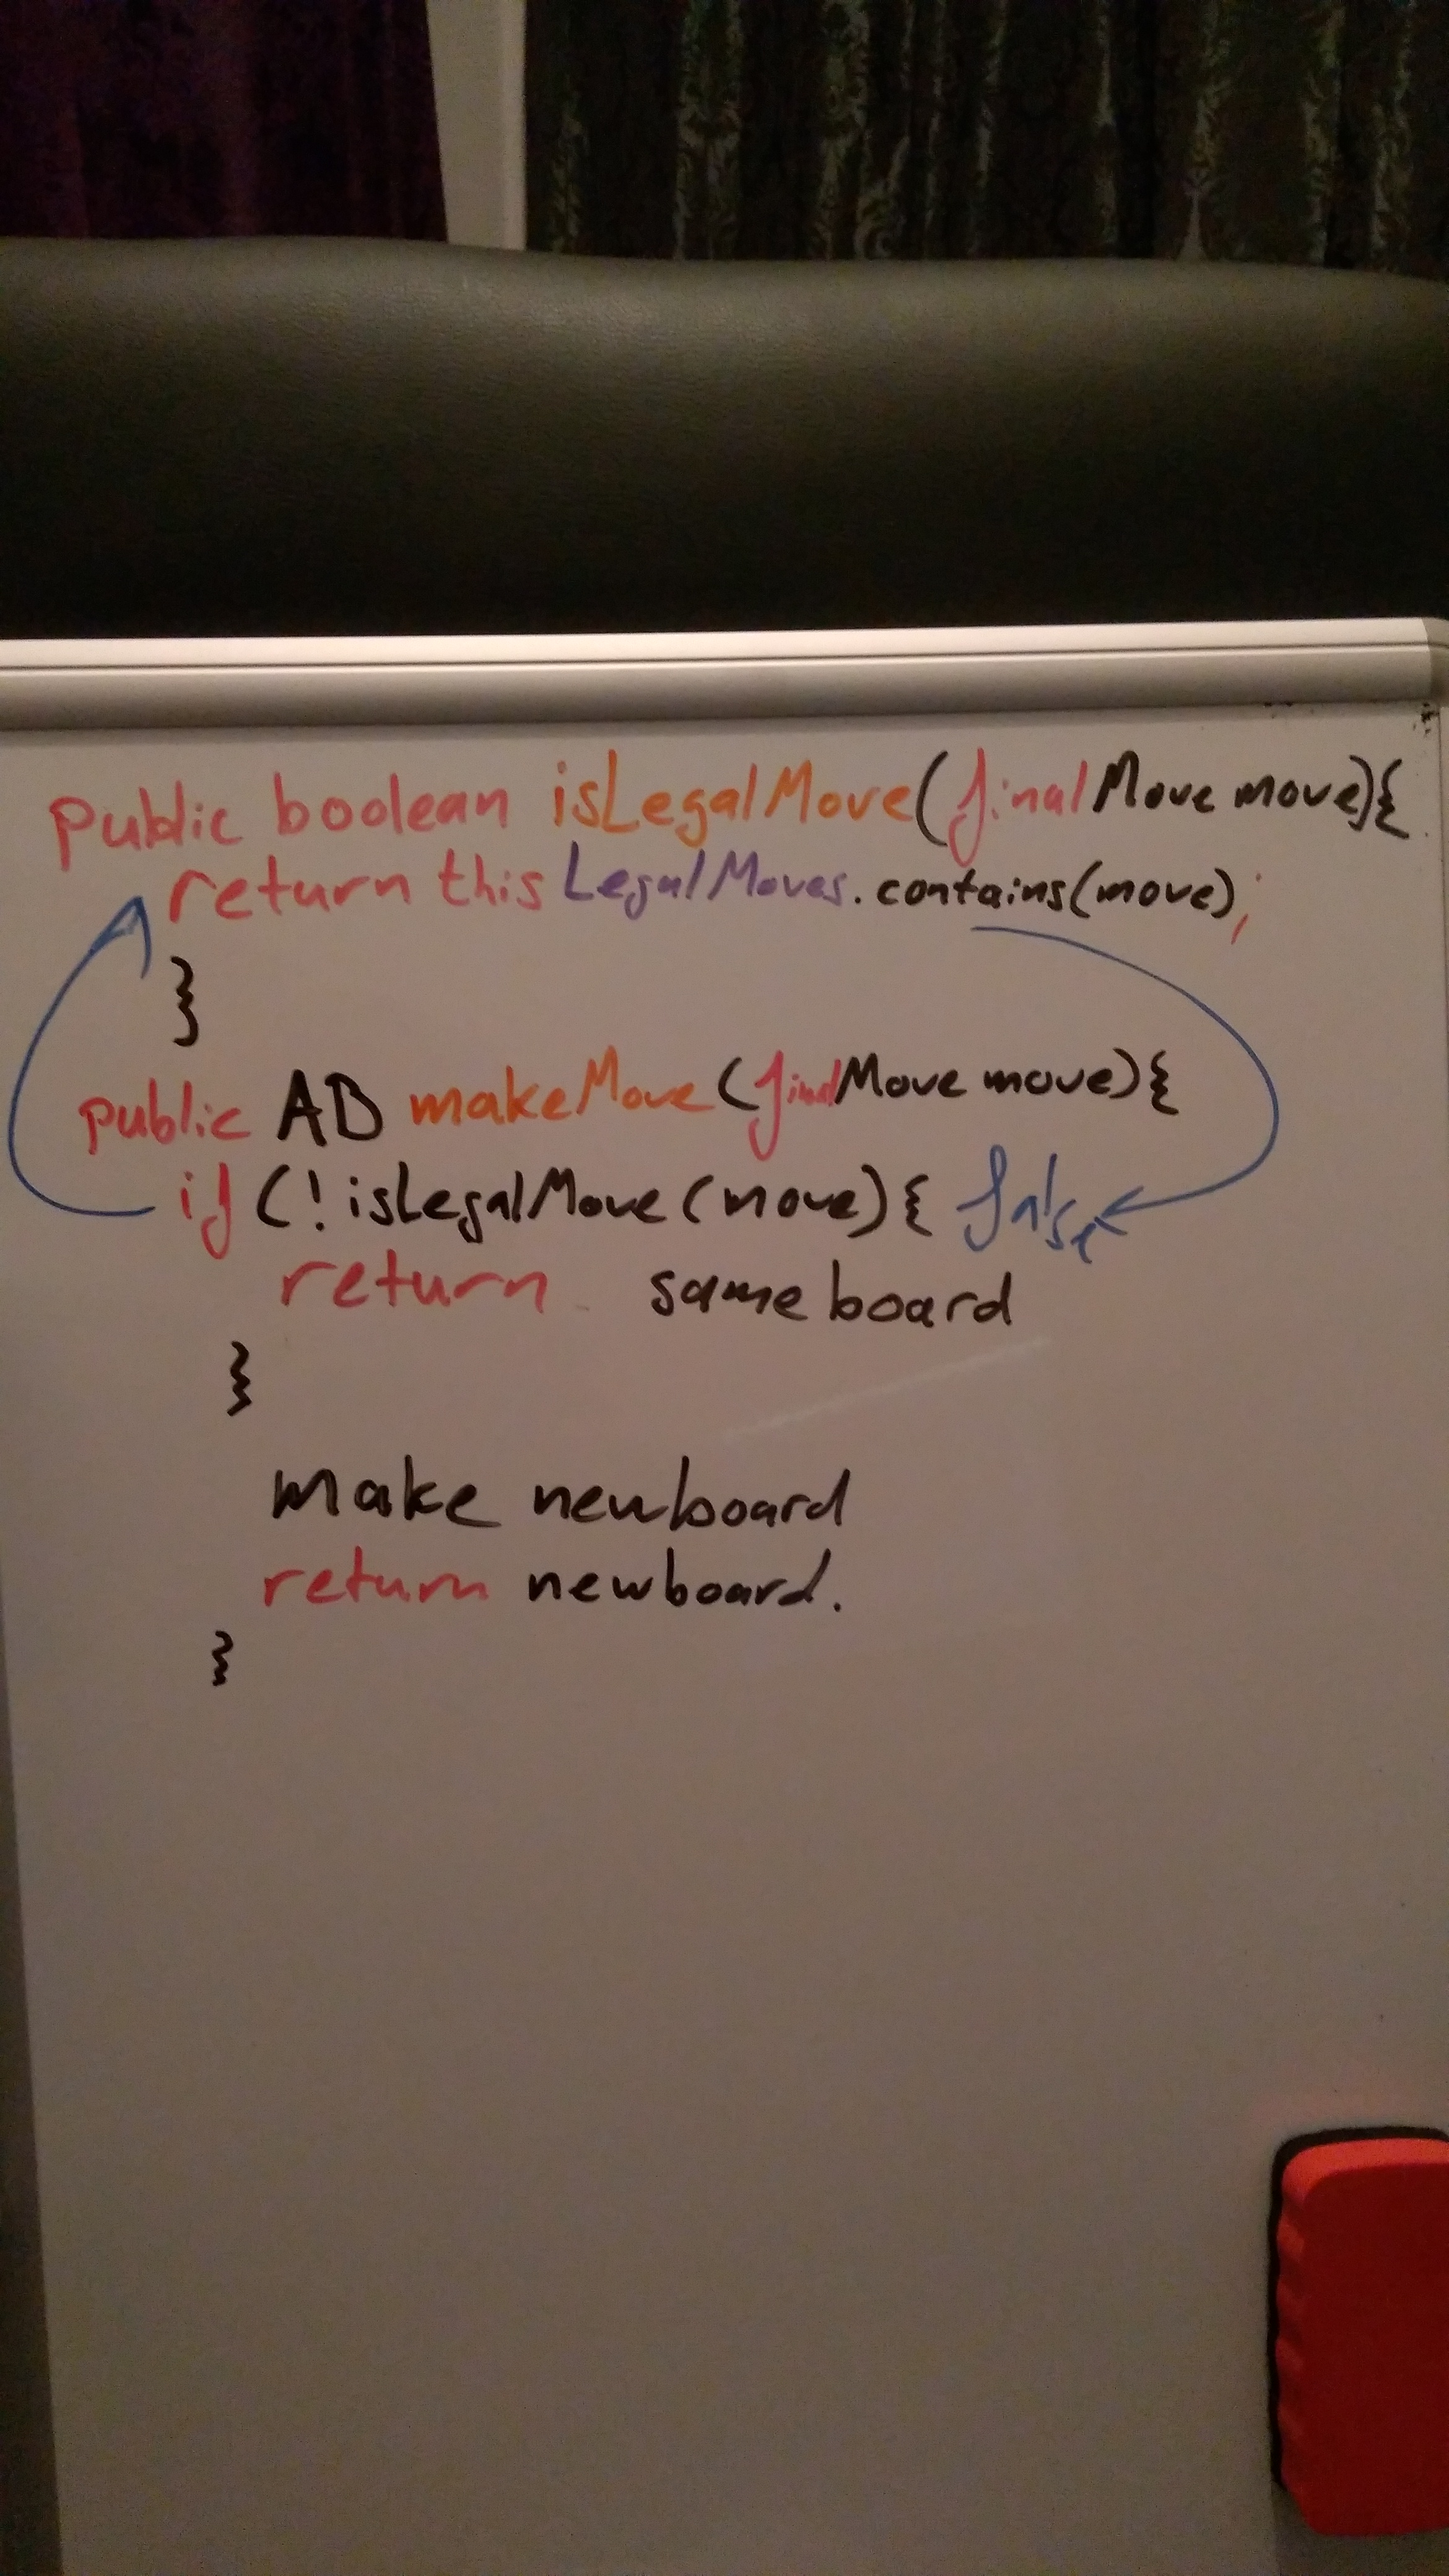 public boolean isLegalMove(final Move move){
return this LegalMoves.contains(move);
}
public AB makeMove(final Move move){
if (! isLegalMove(move){ false
return same board
}
make newboard
return newboard.
}